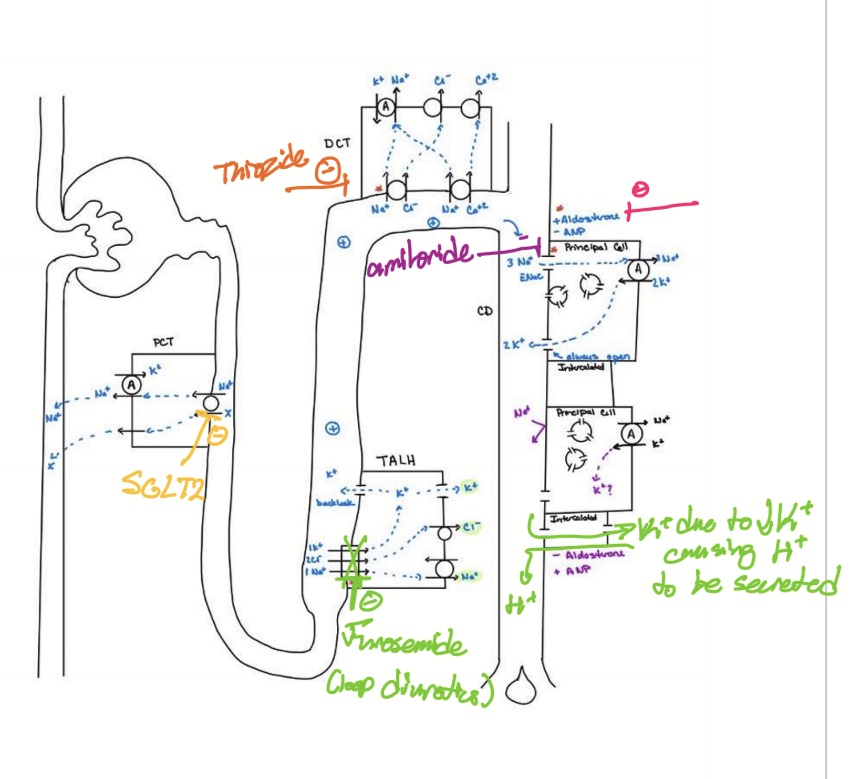 K+ Na+ Cl- Ca+2
A
DCT
Thiazide
-
* Na+ Cl- Na+ Ca+2
+
+
-
*
+ Aldosterone
- ANP
-
amiloride
* Principal Cell
3 Na+
ENaC
A
3 Na+
2K+
CD
2K+
* always open
Intercalated
PCT
K+
A
Na+
Na+
Na+
X
X
-
SGLT2
Na+
Principal Cell
A
Na+
K+
K+?
Intercalated
- Aldosterone
+ ANP
K+ due to ↓K+
causing H+
to be secreted
H+
+
TALH
K+
backleak
K+
K+
Cl-
Na+
1K+
2Cl-
1 Na+
-
Furosemide
(loop diuretics)